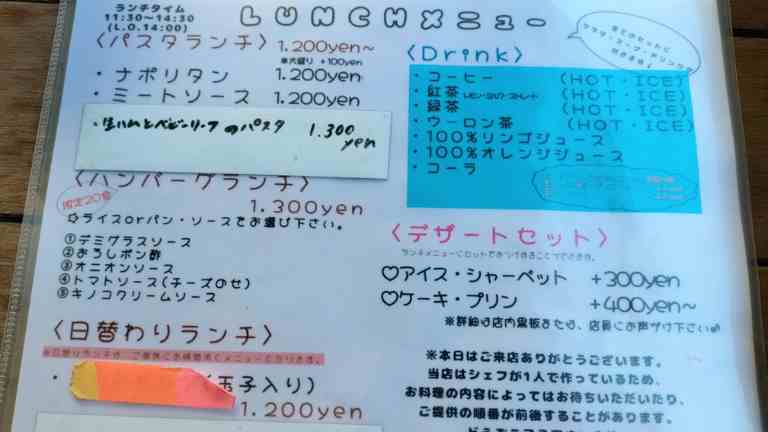 ランチタイム
11:30～14:30
(L.O.14:00)
LUNCHメニュー
〈パスタランチ〉1.200yen～
※大盛り +100yen
・ナポリタン 1.200yen
・ミートソース 1.200yen
・生ハムとベビーリーフのパスタ 1.300yen
〈ハンバーグランチ〉
限定20食
1.300yen
☆ライスorパン・ソースをお選び下さい。
①デミグラスソース
②おろしポン酢
③オニオンソース
④トマトソース(チーズのせ)
⑤キノコクリームソース
〈日替わりランチ〉
・
(玉子入り)
1.200yen
〈Drink〉
・コーヒー (HOT・ICE)
・紅茶 レモン・ミルク・ストレート (HOT・ICE)
・緑茶 (HOT・ICE)
・ウーロン茶 (HOT・ICE)
・100%リンゴジュース
・100%オレンジジュース
・コーラ
〈デザートセット〉
ランチメニューにセットでおつけすることができます。
♡アイス・シャーベット +300yen
♡ケーキ・プリン +400yen～
※詳細は店内黒板または、店員にお声がけ下さい
※本日はご来店ありがとうございます。
当店はシェフが1人で作っているため、
お料理の内容によってはお待ちいただいたり、
ご提供の順番が前後することがあります。